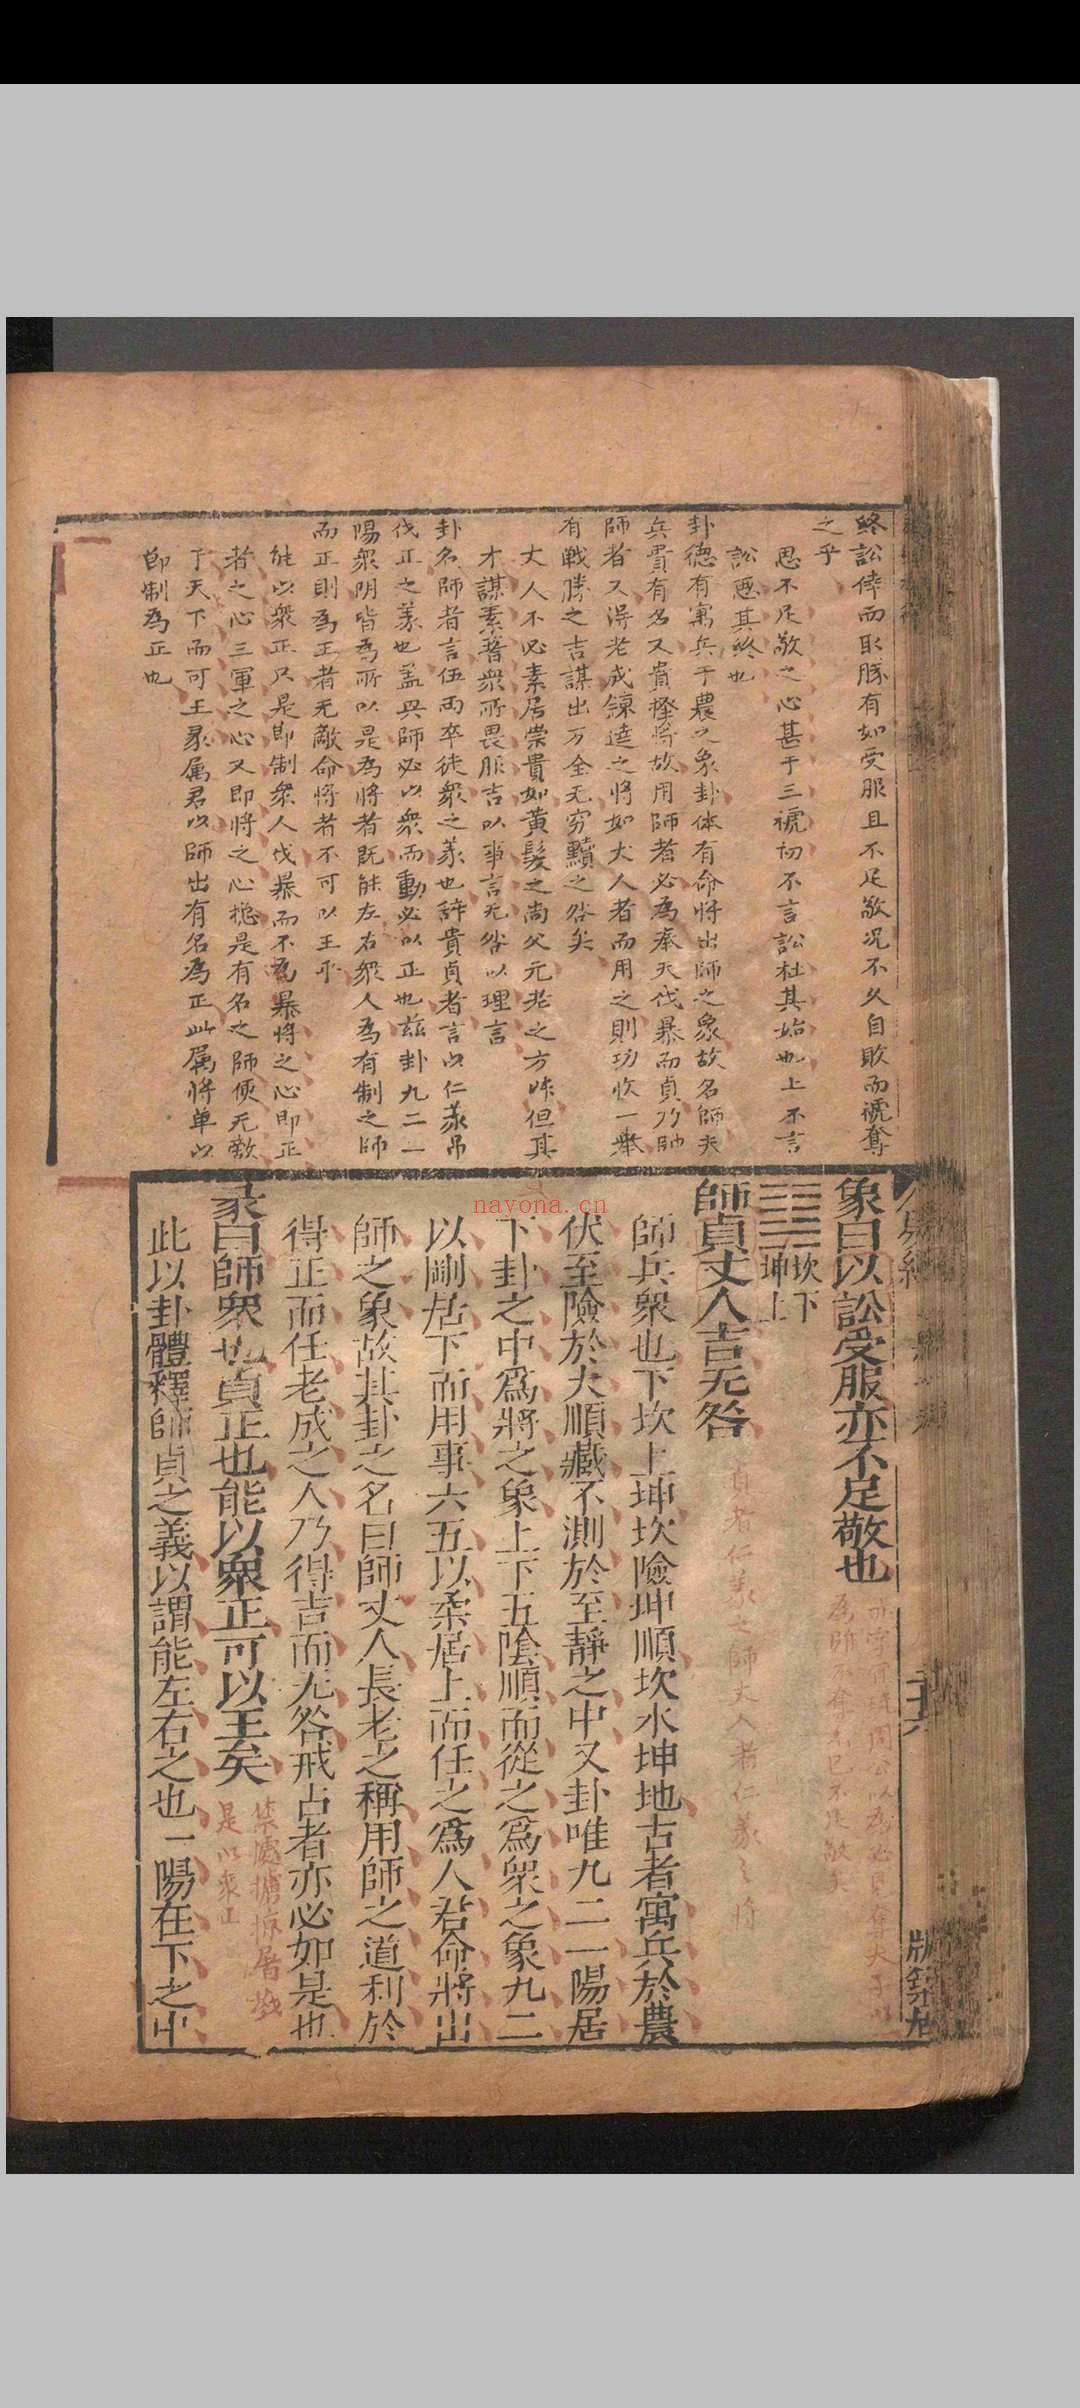 終訟倖而取勝有如受服且不足敬况不久自敗而褫奪
之乎
思不足敬之心甚于三褫初不言訟杜其始也上不言
訟惡其終也
卦德有寓兵于農之象卦体有命將出師之象故名師夫
兵貴有名又貴擇將故用師者必為奉天伐暴而貞乃帥
師者又得老成鍊達之將如丈人者而用之則功收一舉
有戰勝之吉謀出万全无穷黷之咎矣
丈人不必素居崇貴如黃髮之尚父元老之方叔但其
才謀素著衆所畏服吉以事言无咎以理言
卦名師者言伍兩卒徒衆之義也辞貴貞者言以仁義吊
伐正之義也盖興師必以衆而動必以正也兹卦九二一
陽衆阴皆為所以是為將者既能左右衆人為有制之師
而正則為王者无敵命將者不可以王乎
能以衆正只是即制衆人伐暴而不為暴將之心即正
者之心三軍之心又即將之心摠是有名之師便无敵
于天下而可王象属君以師出有名為正此属將单以
節制為正也
象曰以訟受服亦不足敬也
坎下
坤上
師貞丈人吉无咎
貞者仁義之師丈人者仁義之將
師兵衆也下坎上坤坎險坤順坎水坤地古者寓兵於農
伏至險於大順藏不測於至靜之中又卦唯九二一陽居
下卦之中爲將之象上下五陰順而從之爲衆之象九二
以剛居下而用事六五以柔居上而任之爲人君命將出
師之象故其卦之名曰師丈人長老之稱用師之道利於
得正而任老成之人乃得吉而无咎戒占者亦必如是也
彖曰師衆也貞正也能以衆正可以王矣
是以衆正
此以卦體釋師貞之義以謂能左右之也一陽在下之中
nayona.cn